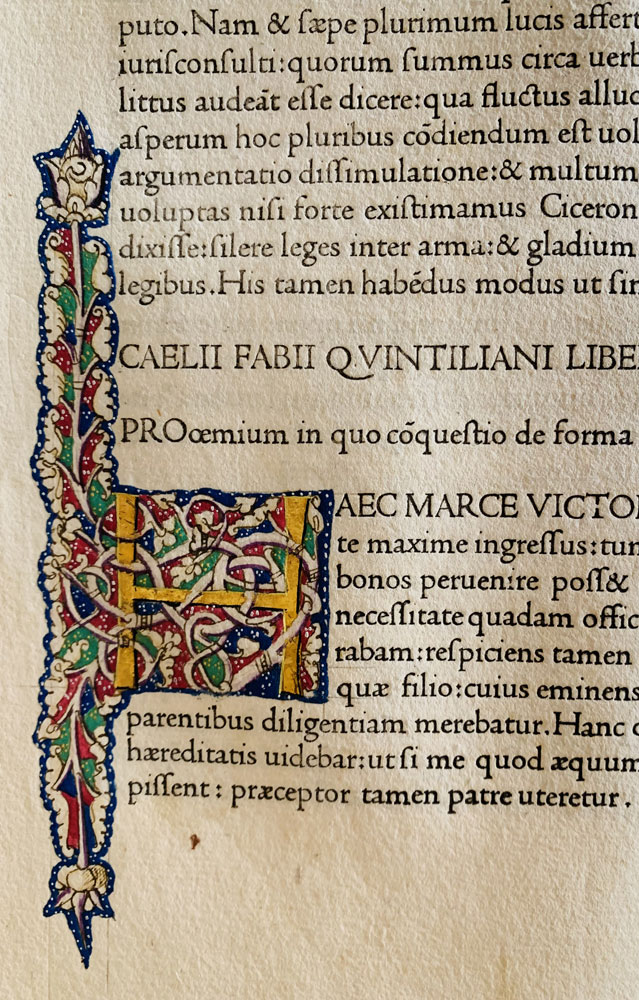 puto.Nam & ſæpe plurimum lucis affert
iuriſconſulti:quorum ſummus circa uerb
littus audeāt eſſe dicere:qua fluctus alluc
aſperum hoc pluribus cōdiendum eſt uol
argumentatio diſſimulatione:& multum
uoluptas niſi forte exiſtimamus Ciceron
dixiſſe:ſilere leges inter arma:& gladium
legibus.His tamen habēdus modus ut ſin
CAELII FABII QVINTILIANI LIBE
PROœmium in quo cōqueſtio de forma
HAEC MARCE VICTO
te maxime ingreſſus:tum
bonos peruenire poſſ&
neceſſitate quadam offic
rabam:reſpiciens tamen
quæ filio:cuius eminens
parentibus diligentiam merebatur.Hanc
hæreditatis uidebar:ut ſi me quod æquum
piſſent: præceptor tamen patre uteretur.